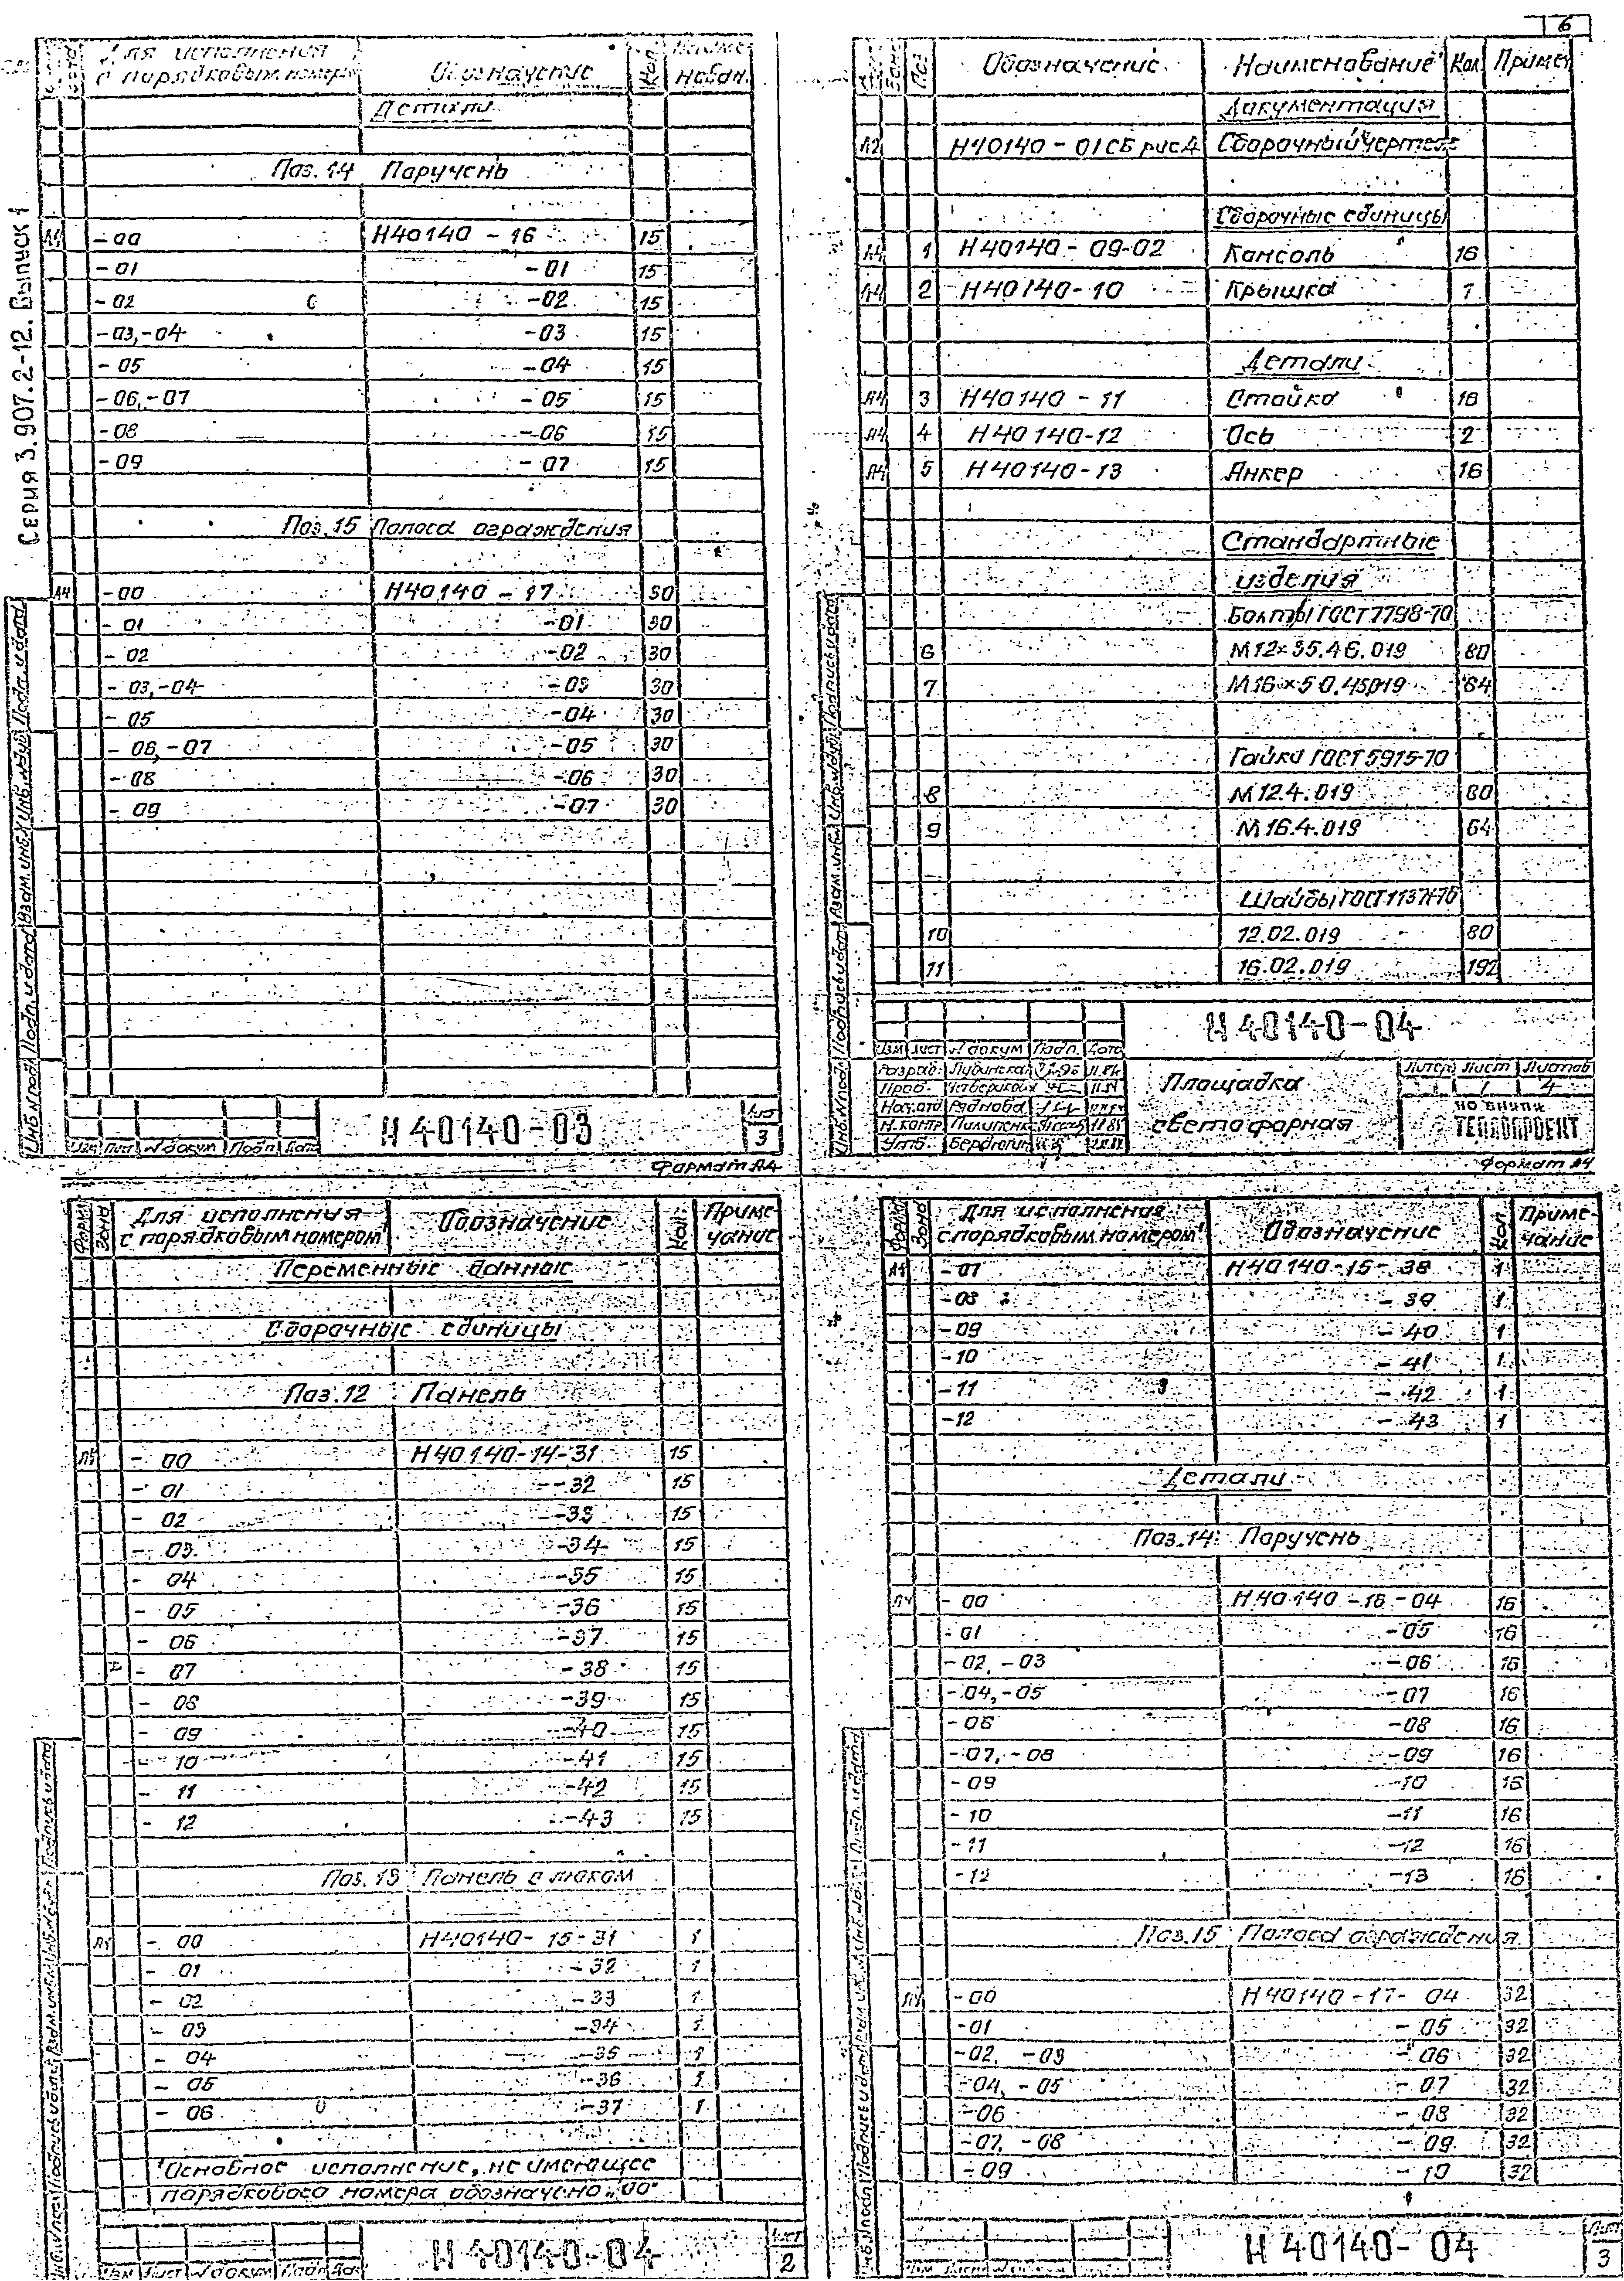 6
Серия 3.907.2-12. Выпуск 1
Для исполнения с порядковым номером Обозначение Кол.
Детали
Поз. 14 Поручень
А4 -00 Н40140-16 15
-01 -01 15
-02 -02 15
-03,-04 -03 15
-05 -04 15
-06,-07 -05 15
-08 -06 15
-09 -07 15
Поз. 15 Полоса ограждения
А4 -00 Н40140-17 30
-01 -01 30
-02 -02 30
-03,-04 -03 30
-05 -04 30
-06,-07 -05 30
-08 -06 30
-09 -07 30
Изм Лист № докум Подп. Дата
Н40140-03
Лист 3
Формат А4
Зона Поз. Обозначение Наименование Кол. Примеч
Документация
А2 Н40140-01СБ рис.4 Сборочный чертеж
Сборочные единицы
А4 1 Н40140-09-02 Консоль 16
А4 2 Н40140-10 Крышка 1
Детали
А4 3 Н40140-11 Стойка 16
А4 4 Н40140-12 Ось 2
А4 5 Н40140-13 Анкер 16
Стандартные
изделия
Болты ГОСТ 7798-70
6 М12×35.46.019 80
7 М16×50.46.019 64
Гайка ГОСТ 5915-70
8 М12.4.019 80
9 М16.4.019 64
Шайбы ГОСТ 11371-78
10 12.02.019 80
11 16.02.019 192
Н40140-04
Изм Лист № докум Подп. Дата
Разраб.
Пров.
Нач.отд
Н.контр
Утв.
Площадка
светофорная
Литер Лист Листов
1 4
ТЕПЛОПРОЕКТ
Формат А4
Форм Зона Для исполнения с порядковым номером Обозначение Кол. Примечание
Переменные данные
Сборочные единицы
Поз. 12 Панель
А4 - 00 Н40140-14-31 15
- 01 -32 15
- 02 -33 15
- 03 -34 15
- 04 -35 15
- 05 -36 15
- 06 -37 15
- 07 -38 15
- 08 -39 15
- 09 -40 15
- 10 -41 15
- 11 -42 15
- 12 -43 15
Поз. 13 Панель с люком
А4 - 00 Н40140-15-31 1
- 01 -32 1
- 02 -33 1
- 03 -34 1
- 04 -35 1
- 05 -36 1
- 06 -37 1
Основное исполнение, не имеющее
порядкового номера обозначено „00"
Изм Лист № докум Подп Дата
Н40140-04
Лист 2
Форм Зона Для исполнения с порядковым номером Обозначение Кол Примечание
А4 -07 Н40140-15-38 1
-08 -39 1
-09 -40 1
-10 -41 1
-11 -42 1
-12 -43 1
Детали
Поз. 14 Поручень
А4 -00 Н40140-16-04 16
-01 -05 16
-02,-03 -06 16
-04,-05 -07 16
-06 -08 16
-07,-08 -09 16
-09 -10 16
-10 -11 16
-11 -12 16
-12 -13 16
Поз. 15 Полоса ограждения
А4 -00 Н40140-17-04 32
-01 -05 32
-02, -03 -06 32
-04, -05 -07 32
-06 -08 32
-07, -08 -09 32
-09 -10 32
Н40140-04
Лист 3